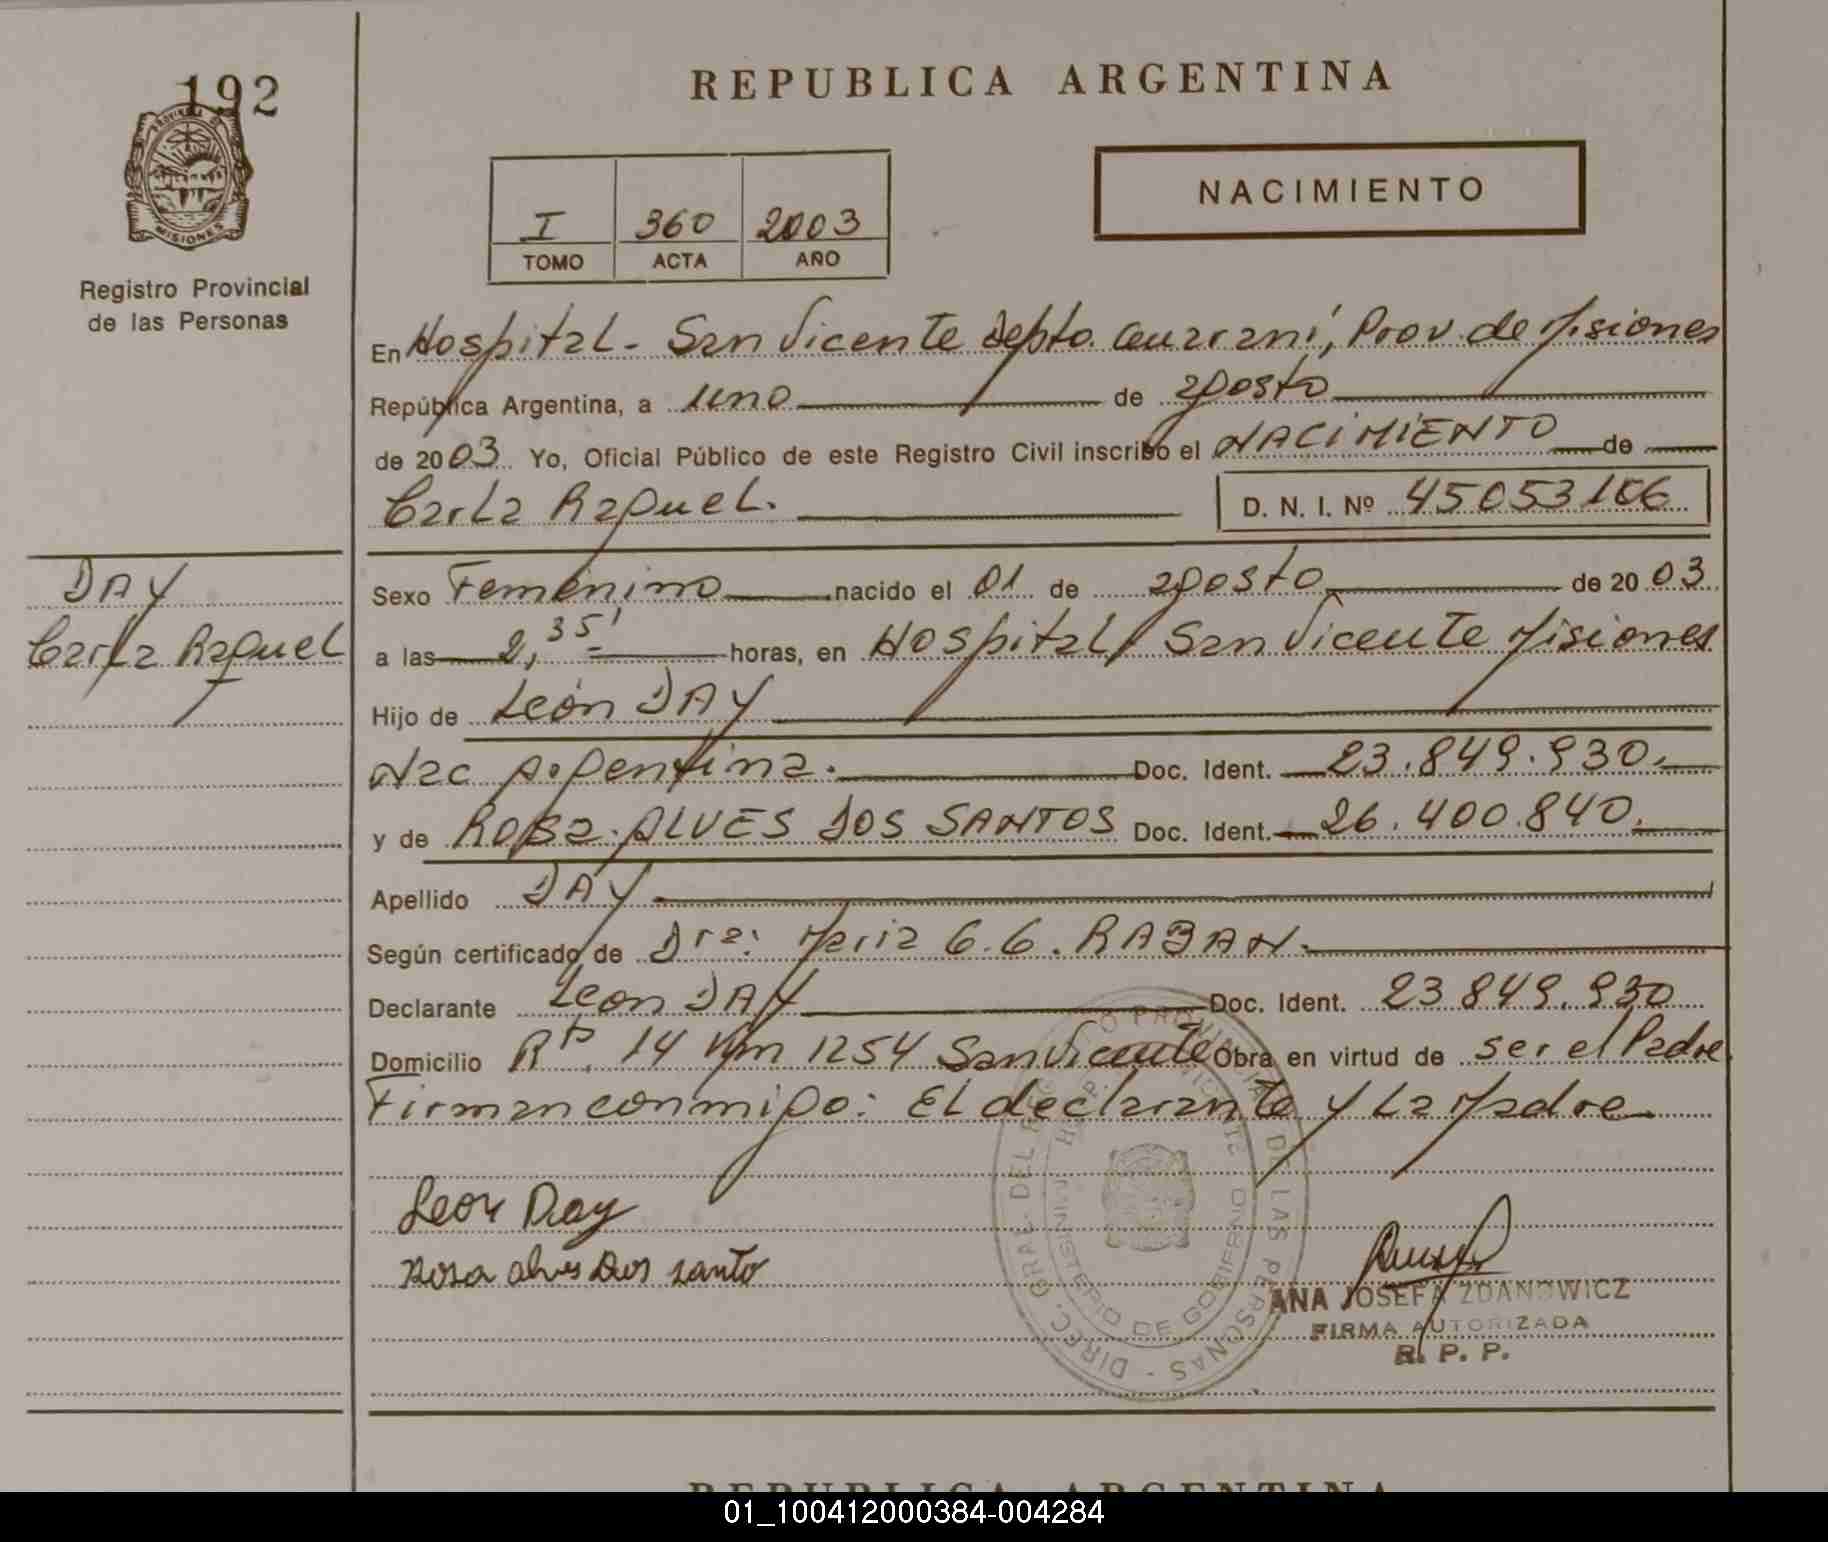 192
PROVINCIA DE MISIONES
Registro Provincial
de las Personas
DAY
Carla Raquel
REPUBLICA ARGENTINA
NACIMIENTO
I 360 2003
TOMO ACTA AÑO
En Hospital - San Vicente Depto. Guaraní, Prov. de Misiones
República Argentina, a uno de agosto
de 2003 Yo, Oficial Público de este Registro Civil inscribo el NACIMIENTO de
Carla Raquel. D. N. I. Nº 45053106
Sexo Femenino nacido el 01 de agosto de 2003
a las 2,35' horas, en Hospital, San Vicente Misiones
Hijo de León DAY
Nac Argentina. Doc. Ident. 23.849.930.
y de Rosa ALVES DOS SANTOS Doc. Ident. 26.400.840.
Apellido DAY
Según certificado de Dra: Maria G.G. RABAN.
Declarante Leon DAY Doc. Ident. 23849.930
Domicilio Rta. 14 Km 1254 San Vicente Obra en virtud de ser el Padre
Firman conmigo: El declarante y La Madre
Leon Day
Rosa alves Dos santo
DIREC. GRAL. DEL REGISTRO PROVINCIAL DE LAS PERSONAS -
MINISTERIO DE GOBIERNO
ANA JOSEFA ZDANOWICZ
FIRMA AUTORIZADA
R. P. P.
REPUBLICA ARGENTINA
01_100412000384-004284